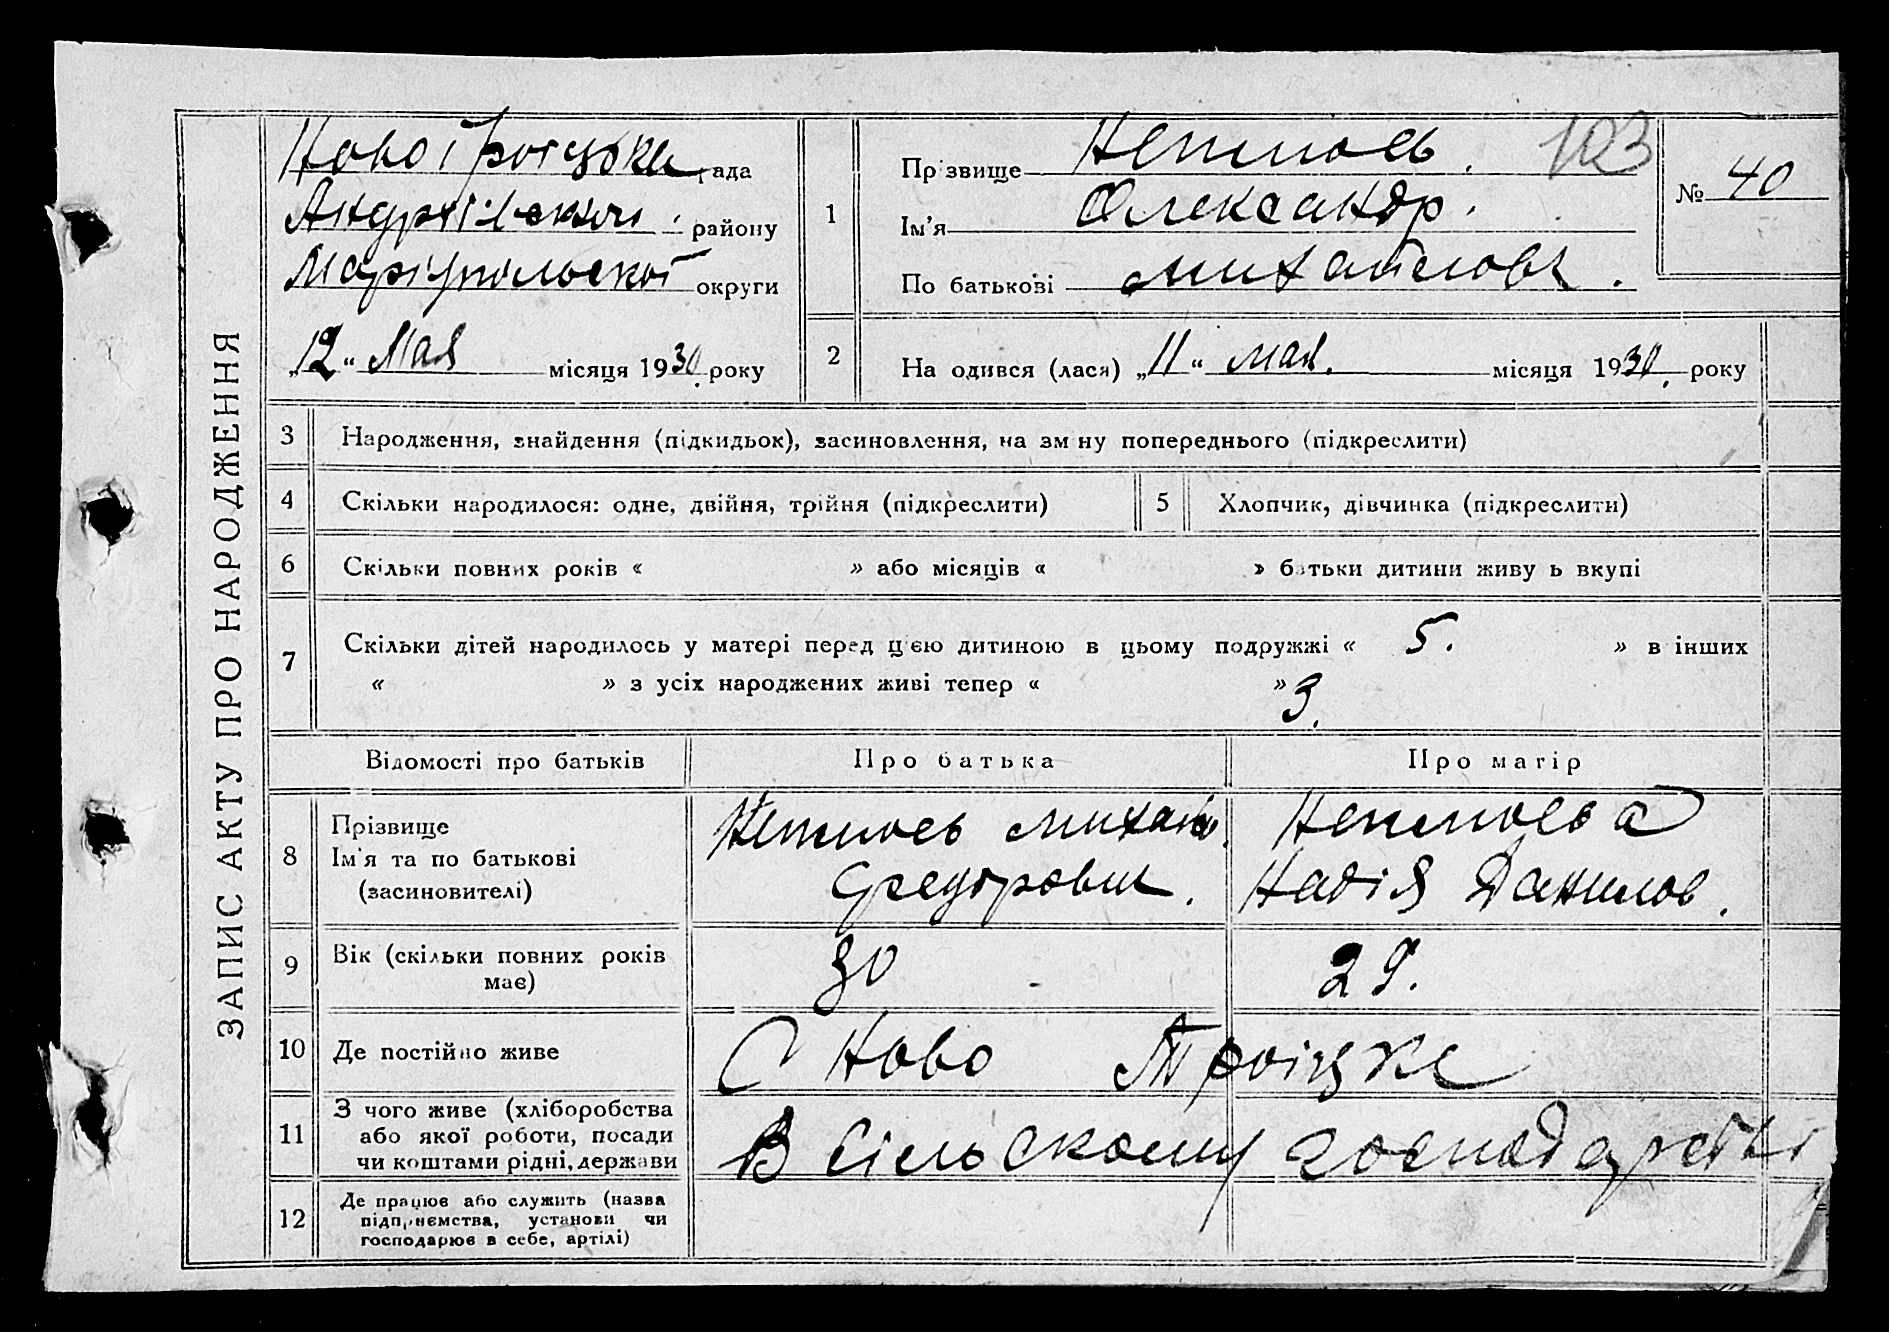 ЗАПИС АКТУ ПРО НАРОДЖЕННЯ
рада
району
Маріупольскої округи
„12“ Мая місяця 1930. року
1
Прізвище
103
Ім'я Олександр.
По батькові Михайлович.
№ 40
2
На одився (лася) „11“ мая. місяця 1930. року
3 Народження, знайдення (підкидьок), засиновлення, на зм ну попереднього (підкреслити)
4 Скільки народилося: одне, двійня, трійня (підкреслити)
5 Хлопчик, дівчинка (підкреслити)
6 Скільки повних років « » або місяців « » батьки дитини живу ь вкупі
7 Скільки дітей народилось у матері перед цією дитиною в цьому подружжі « 5. » в інших
« » з усіх народжених живі тепер « » 3.
Відомості про батьків
Про батька
Про матір
8
Прізвище
Ім'я та по батькові
(засиновителі)
Надія Данилов.
9 Вік (скільки повних років
має)
30
29.
10 Де постійно живе
С Ново Троіцке
11 З чого живе (хліборобства
або якої роботи, посади
чи коштами рідні, держави
В сільскому господарстві
12 Де працює або служить (назва
підприємства, установи чи
господарює в себе, артілі)